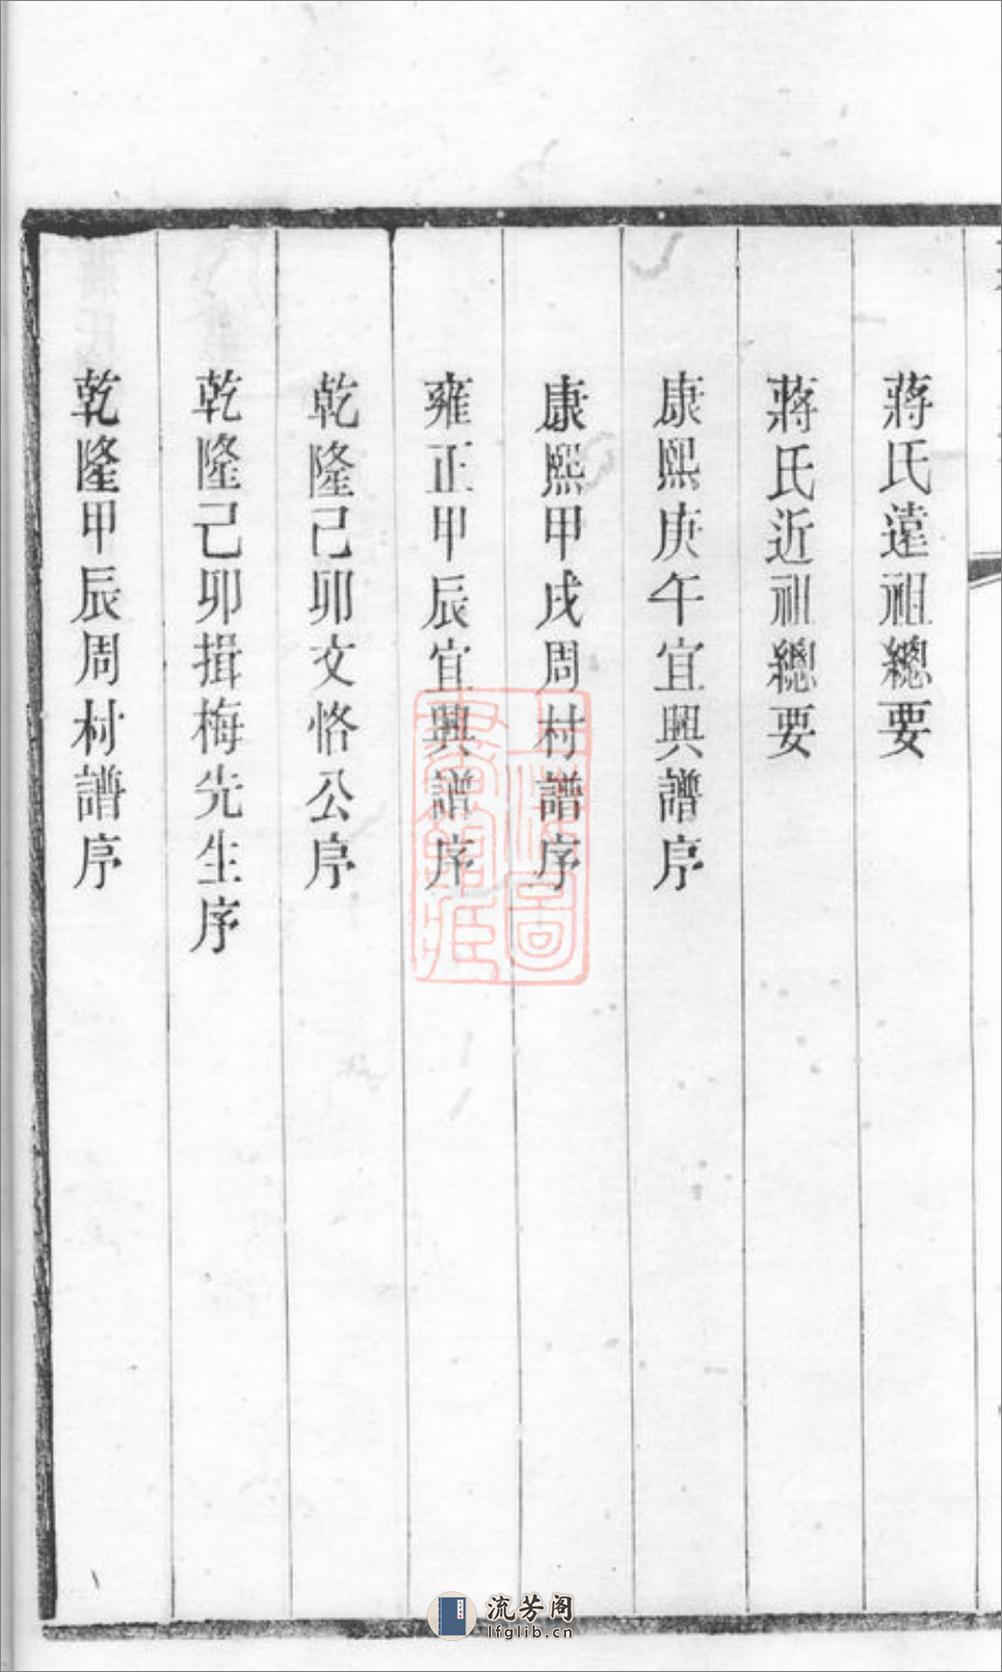 蔣氏遠祖總要
蔣氏近祖總要
康熙庚午宜興譜序
康熙甲戌周村譜序
雍正甲辰宜興譜序
乾隆己卯文恪公序
乾隆己卯揖梅先生序
乾隆甲辰周村譜序
上海圖
書館藏
流芳阁
lfglib.cn